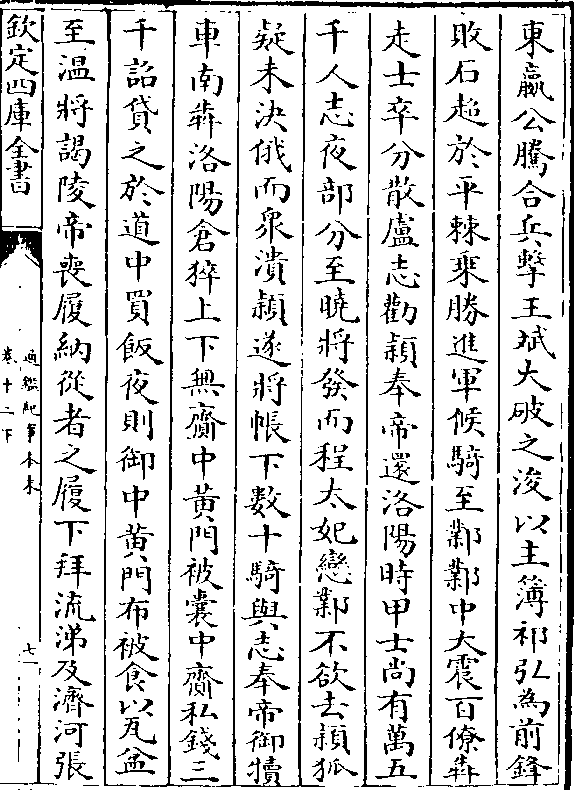 東嬴公騰合兵擊王斌大破之浚以主簿祁弘為前鋒
敗石超於平棘乗勝進軍候騎至鄴鄴中大震百僚犇
走士卒分散盧志勸穎奉帝還洛陽時甲士尚有萬五
千人志夜部分至曉將發而程太妃戀鄴不欲去穎狐
疑未決俄而衆潰穎遂將帳下數十騎與志奉帝御犢
車南犇洛陽倉猝上下無齎中黄門被囊中齎私錢三
千詔貸之於道中買飯夜則御中黄門布被食以瓦盆
至溫將謁陵帝喪履納從者之履下拜流涕及濟河張
欽定四庫全書
通鑑紀事本末
卷十二下
七一